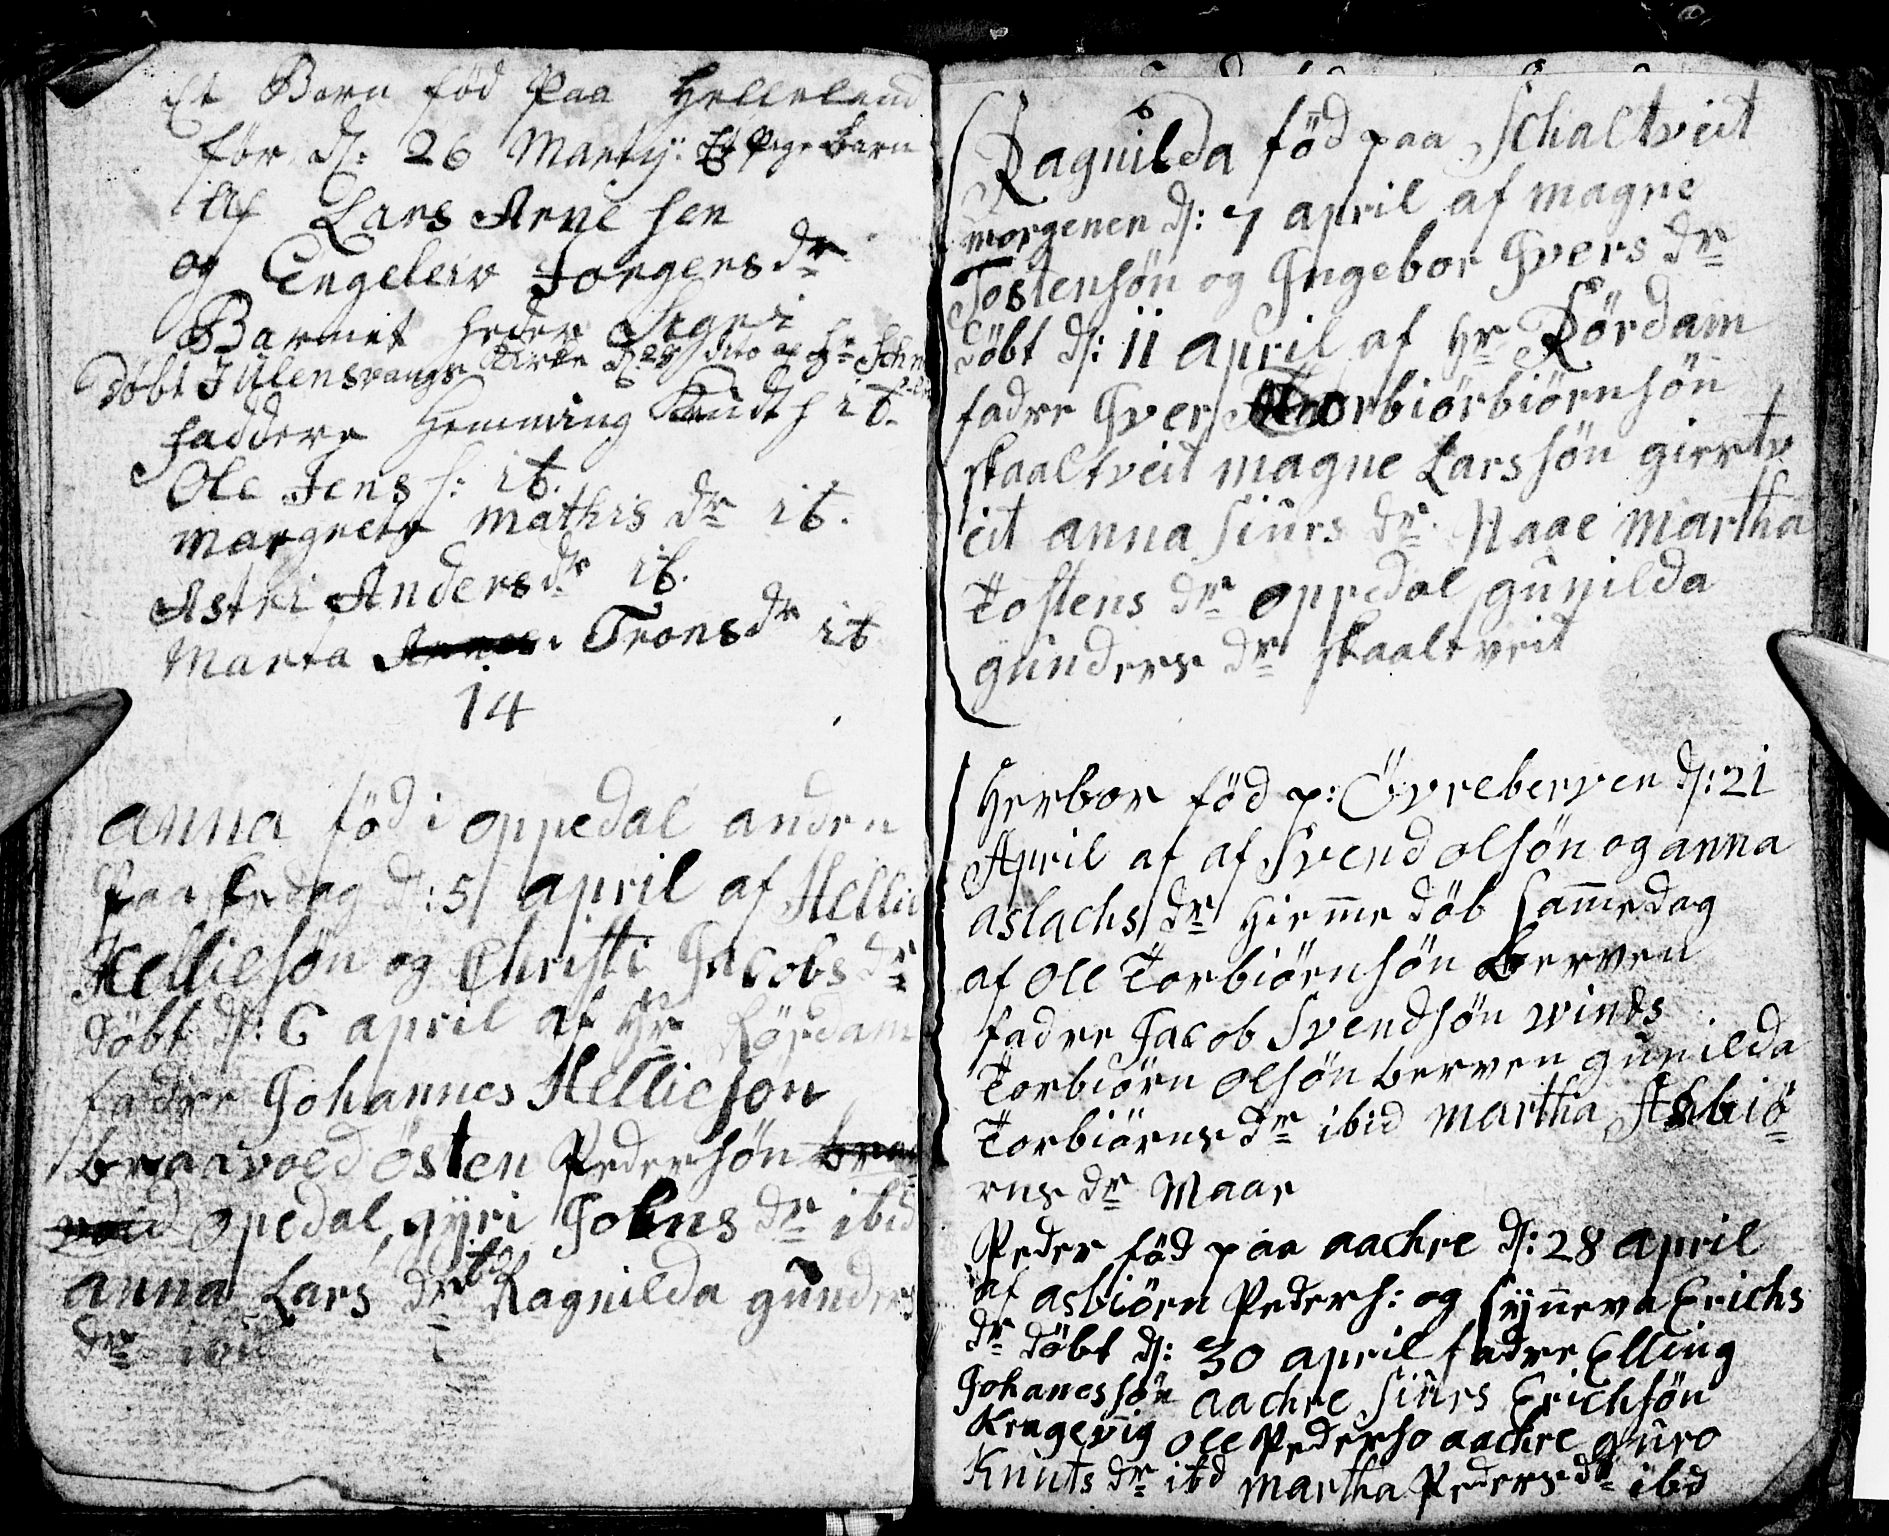 Et Barn föd Paa Helleland
för d: 26 Marty: Et Pige Barn
Af Lars Arne sen
og Engeleiv Jorgens dr
Barnet heder Sigri
Döbt I Ullensvangs Kirke d: 28 dito af Hr Sch
faddere Hemming Knudt s ib.
Ole Jens s: ib.
Margrete Mathis dr ib.
Astri Anders dr ib.
Marta Trons dr ib
14
anna föd i oppedal anden
Paaske dag d: 5 april af Hellie
Hellieson og Christi Jacobs dr
döbt d: 6 april af Hr Rördam
fadre Johannes Hellieson
braavold östen Pedersön
opedal, gyri Johns dr ibid
anna Lars dr ibd Ragnilda gunders
dr ibid
Ragnilda föd paa Schaltveit
morgenen d: 7 april af magne
Tostensön og Ingebor Ivers dr
döbt d: 11 april af Hr Rördam
fadre Iver Torbiörbiörnsön
skaaltveit magne Lars sön giertv
eit anna siurs dr Haae martha
Tostens dr oppedal gunilda
gunders dr skaaltveit
Herbor föd p: Övreberven d: 21
April af af Svend olsön og anna
aslachs dr hiemme döb samme dag
af ole Torbiörnsön Berven
fadre Jacob Svendsön winds
Torbiörn olsön berven gunilda
Torbiörns dr ibid martha Asbiö
rns dr Maar
Peder föd paa aachre d: 28 april
af asbiörn Peders: og synneva Erichs
dr döbt d: 30 april fadre Elling
Johanessön aachre siurs Erichsön
Kragevig ole Pederso aachre guro
Knuts dr ibd martha Peders dr ibd